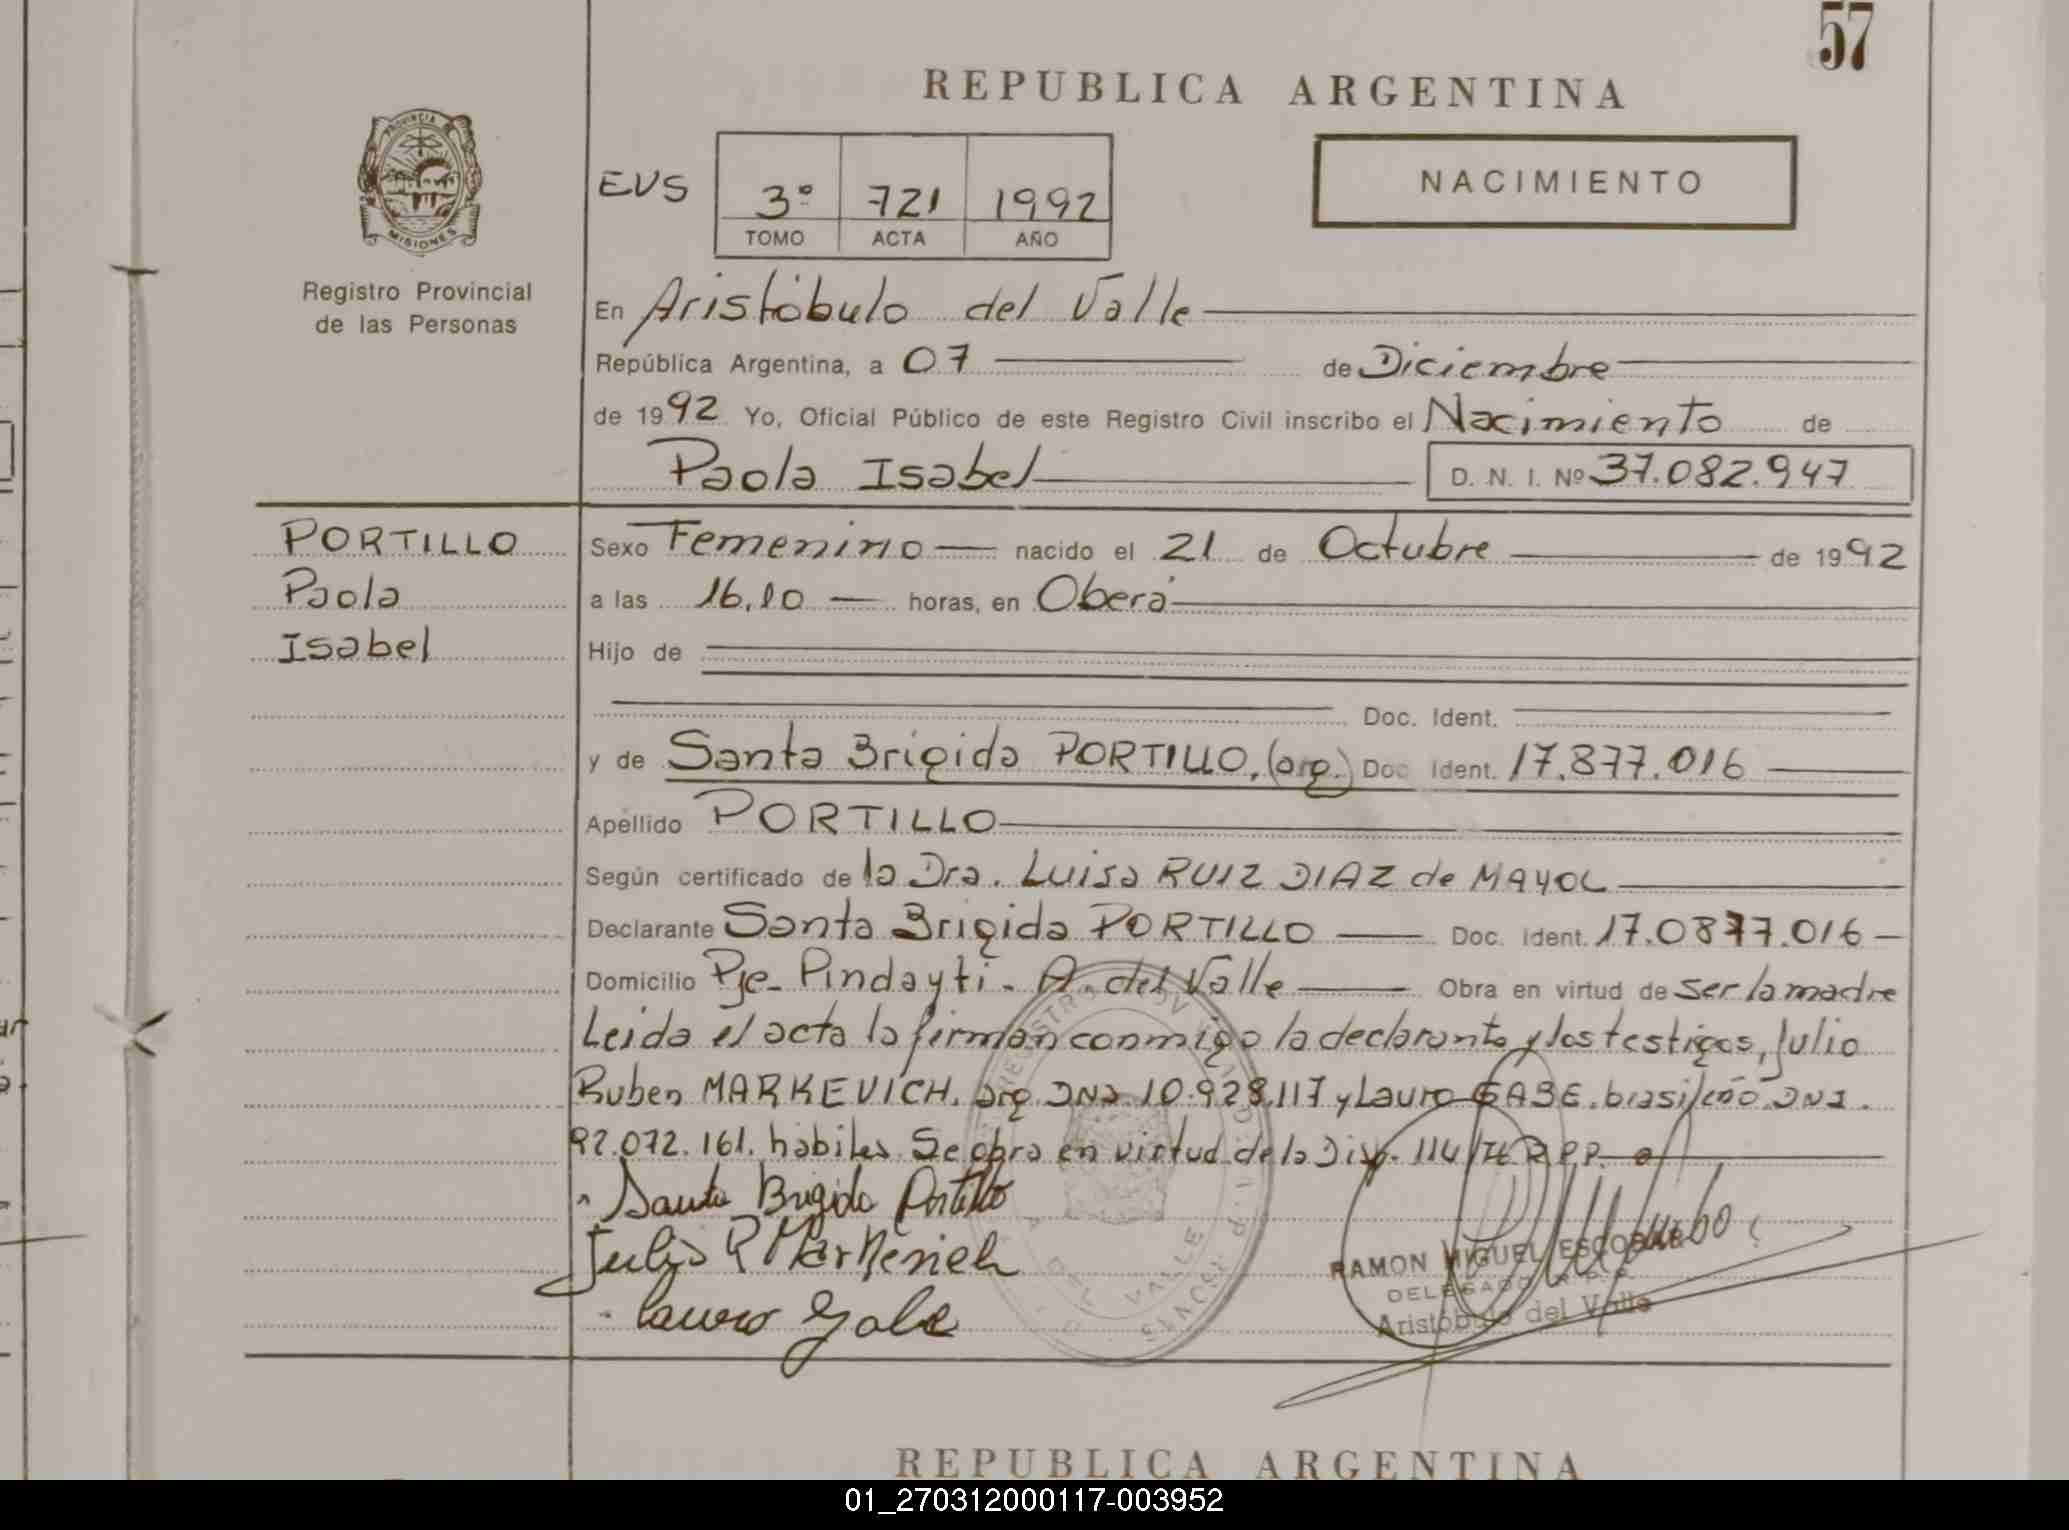 57
REPUBLICA ARGENTINA
PROVINCIA DE
MISIONES
Registro Provincial
de las Personas
EVS
3º 721 1992
TOMO ACTA AÑO
NACIMIENTO
En Aristóbulo del Valle
República Argentina, a 07 de Diciembre
de 1992 Yo, Oficial Público de este Registro Civil inscribo el Nacimiento de
Paola Isabel D. N. I. Nº 37.082.947
PORTILLO
Paola
Isabel
Sexo Femenino nacido el 21 de Octubre de 1992
a las 16,10 horas, en Oberá
Hijo de
Doc. Ident.
y de Santa Brigida PORTILLO, (arg.) Doc Ident. 17.877.016
Apellido PORTILLO
Según certificado de la Dra. Luisa RUIZ DIAZ de MAYOL
Declarante Santa Brigida PORTILLO Doc. Ident. 17.0877.016
Domicilio Pje. Pindayti - A. del Valle Obra en virtud de ser la madre
Leida el acta la firman conmigo la declarante y los testigos, Julio
Ruben MARKEVICH. arg. DNI 10.928.117 y Lauro GABE. brasileño. DNI.
92.072.161. habiles. Se obra en virtud de la Disp. 114/ R.P.P.
Santa Brigida Portillo
Julio R Markevich
Lauro Gabe
RAMON MIGUEL ESCOBAR
DELEGADO R.P.P.
Aristóbulo del Valle
REPUBLICA ARGENTINA
01_270312000117-003952